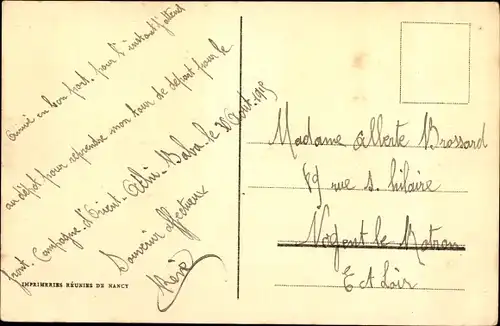 Arrivé en bon port. pour l'instant j'attend
au dépôt pour reprendre mon tour de départ pour le
front. Campagne d'Orient. Athi-Baba, le 20 Août 1915
Souvenir affectueux
René
IMPRIMERIES RÉUNIES DE NANCY
Madame Alberte Brossard
79 rue s. hilaire
Nogent le Rotrou
E et Loir